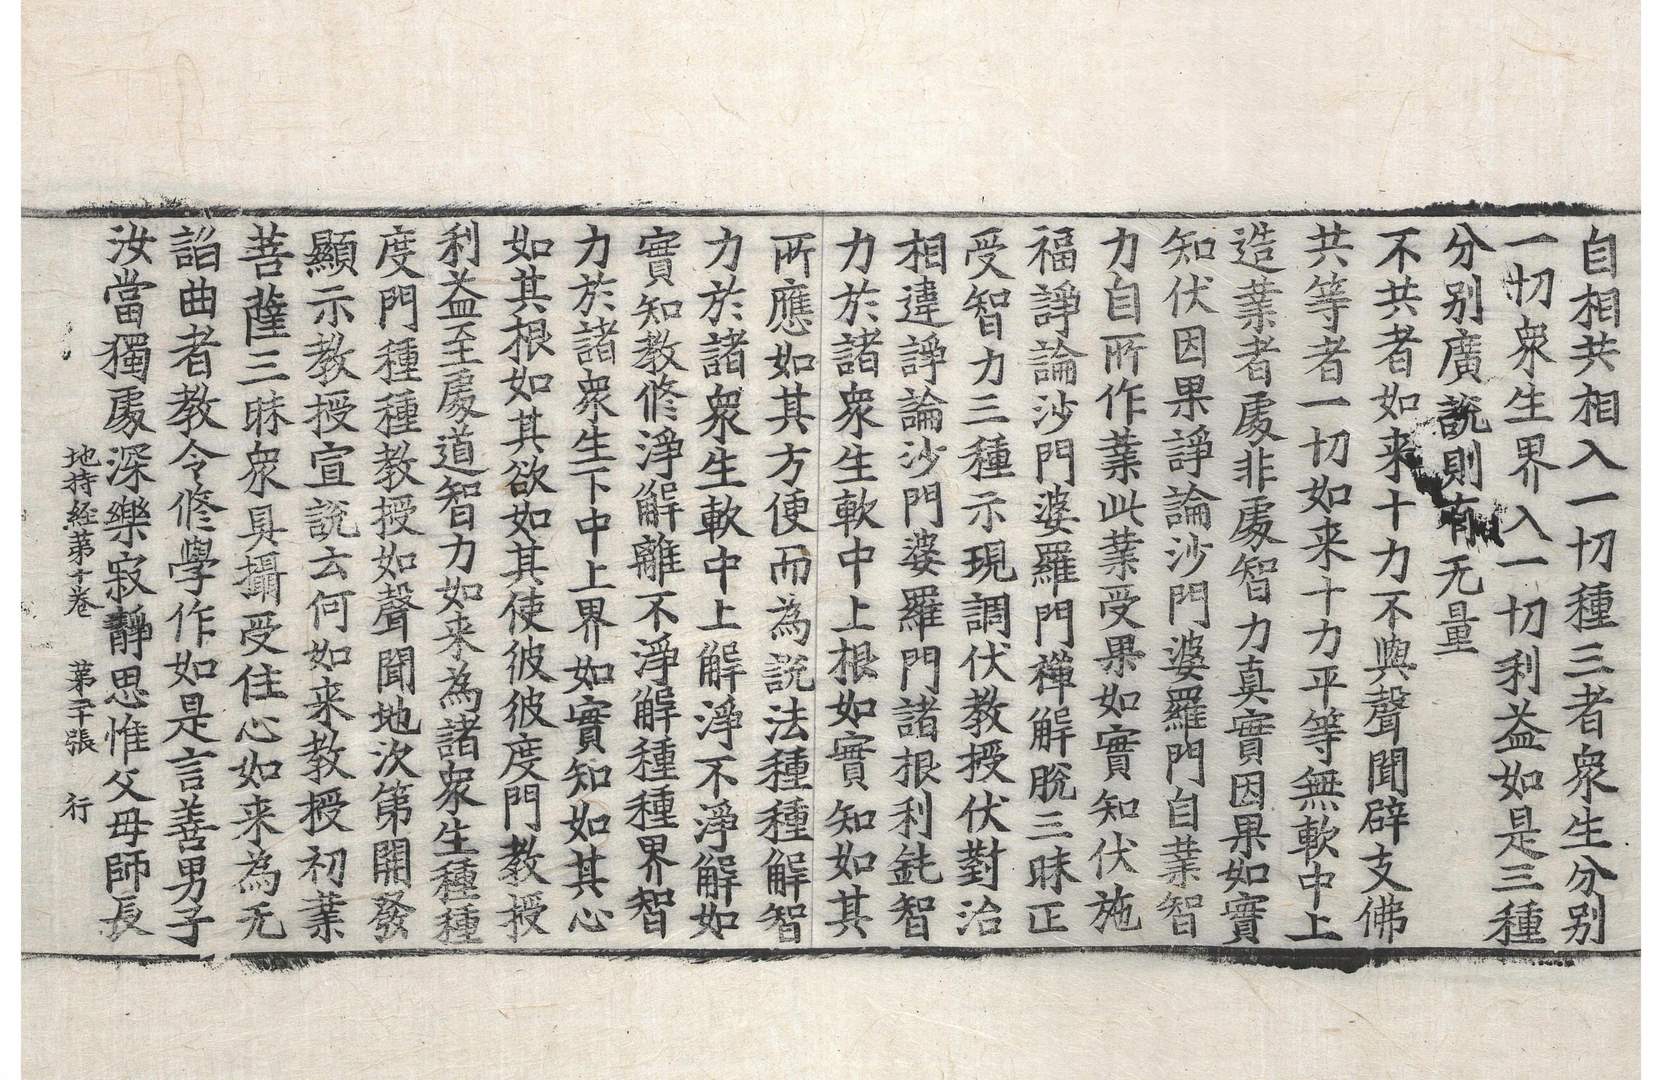 自相共相入一切種三者衆生分别
一切衆生界入一切利益如是三種
分别廣說則有无量
不共者如来十力不與聲聞辟支佛
共等者一切如来十力平等無軟中上
造業者處非處智力真實因果如實
知伏因果諍論沙門婆羅門自業智
力自所作業此業受果如實知伏施
福諍論沙門婆羅門禪解脫三昧正
受智力三種示現調伏教授伏對治
相違諍論沙門婆羅門諸根利鈍智
力於諸衆生軟中上根如實知如其
所應如其方便而為說法種種解智
力於諸衆生軟中上解淨不淨解如
實知教修淨解離不淨解種種界智
力於諸衆生下中上界如實知如其心
如其根如其欲如其使彼彼度門教授
利益至處道智力如来為諸衆生種種
度門種種教授如聲聞地次第開發
顯示教授宣說云何如来教授初業
菩薩三昧衆具攝受住心如来為无
諂曲者教令修學作如是言善男子
汝當獨處深樂寂靜思惟父母師長
地持經第十卷 第二十張 行